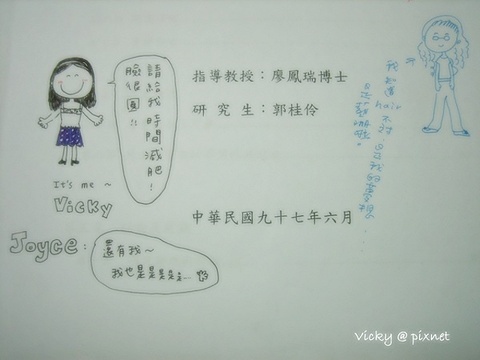 指導教授：廖鳳瑞博士
研究生：郭桂伶
中華民國九十七年六月
請給我時間減肥!
臉很圓!!
It's me ~
Vicky
Joyce:
還有我~
我也是是是是是...
我知道 hair 不對
vicky @ pixnet